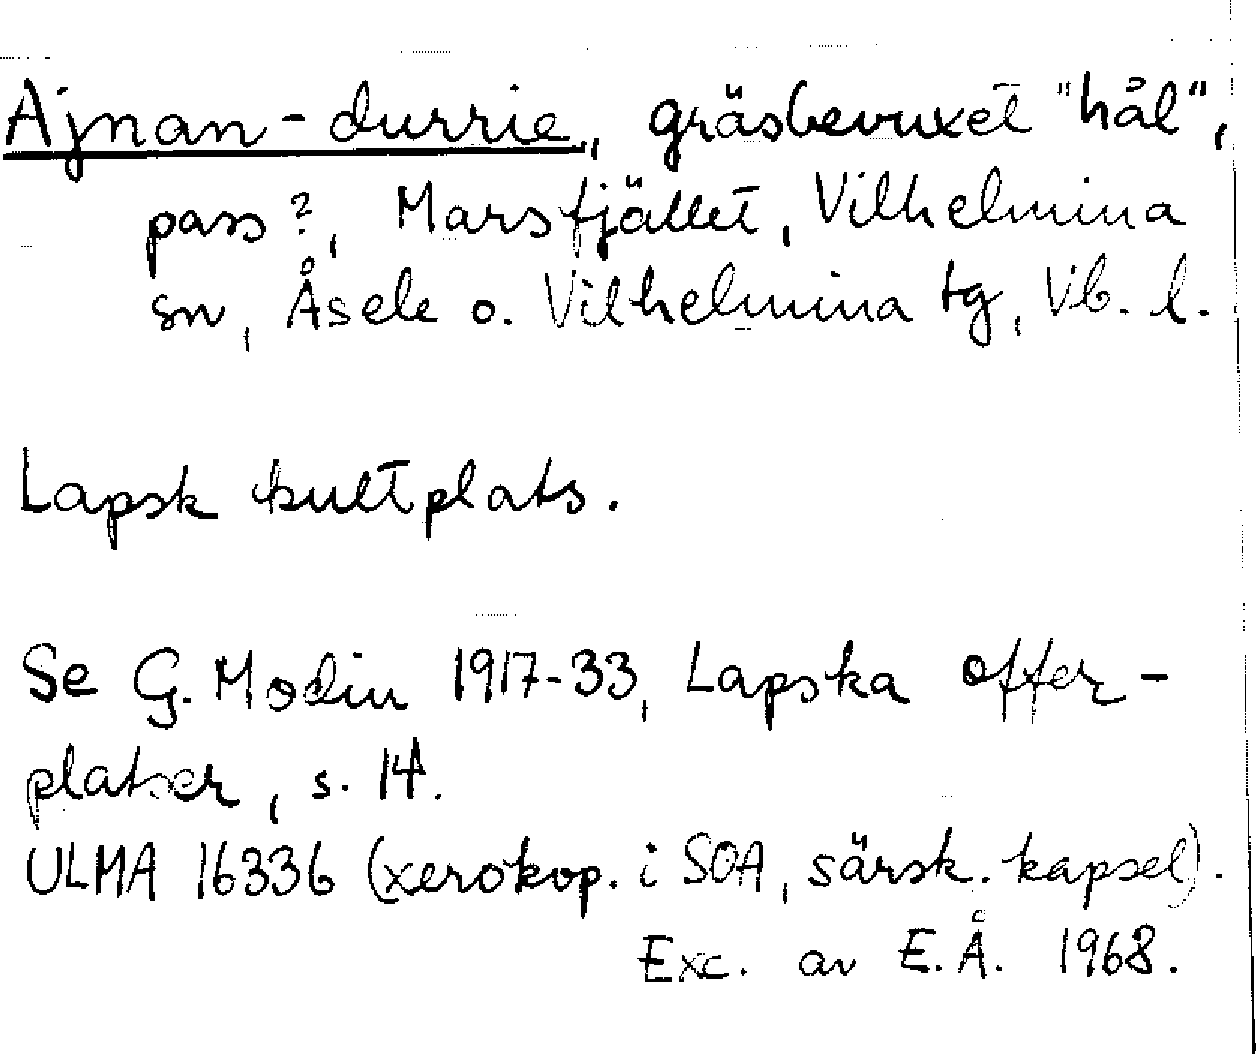 Ajnan-durrie, gräsbevuxet "hål",
pass?, Marsfjället, Vilhelmina
sn, Åsele o. Vilhelmina tg, Vb. l.
Lapsk kultplats.
Se G. Modin 1917-33, Lapska offer-
platser, s. 14.
ULMA 16336 (xerokop. i SOA, särsk. kapsel).
Exc. av E.Å. 1968.